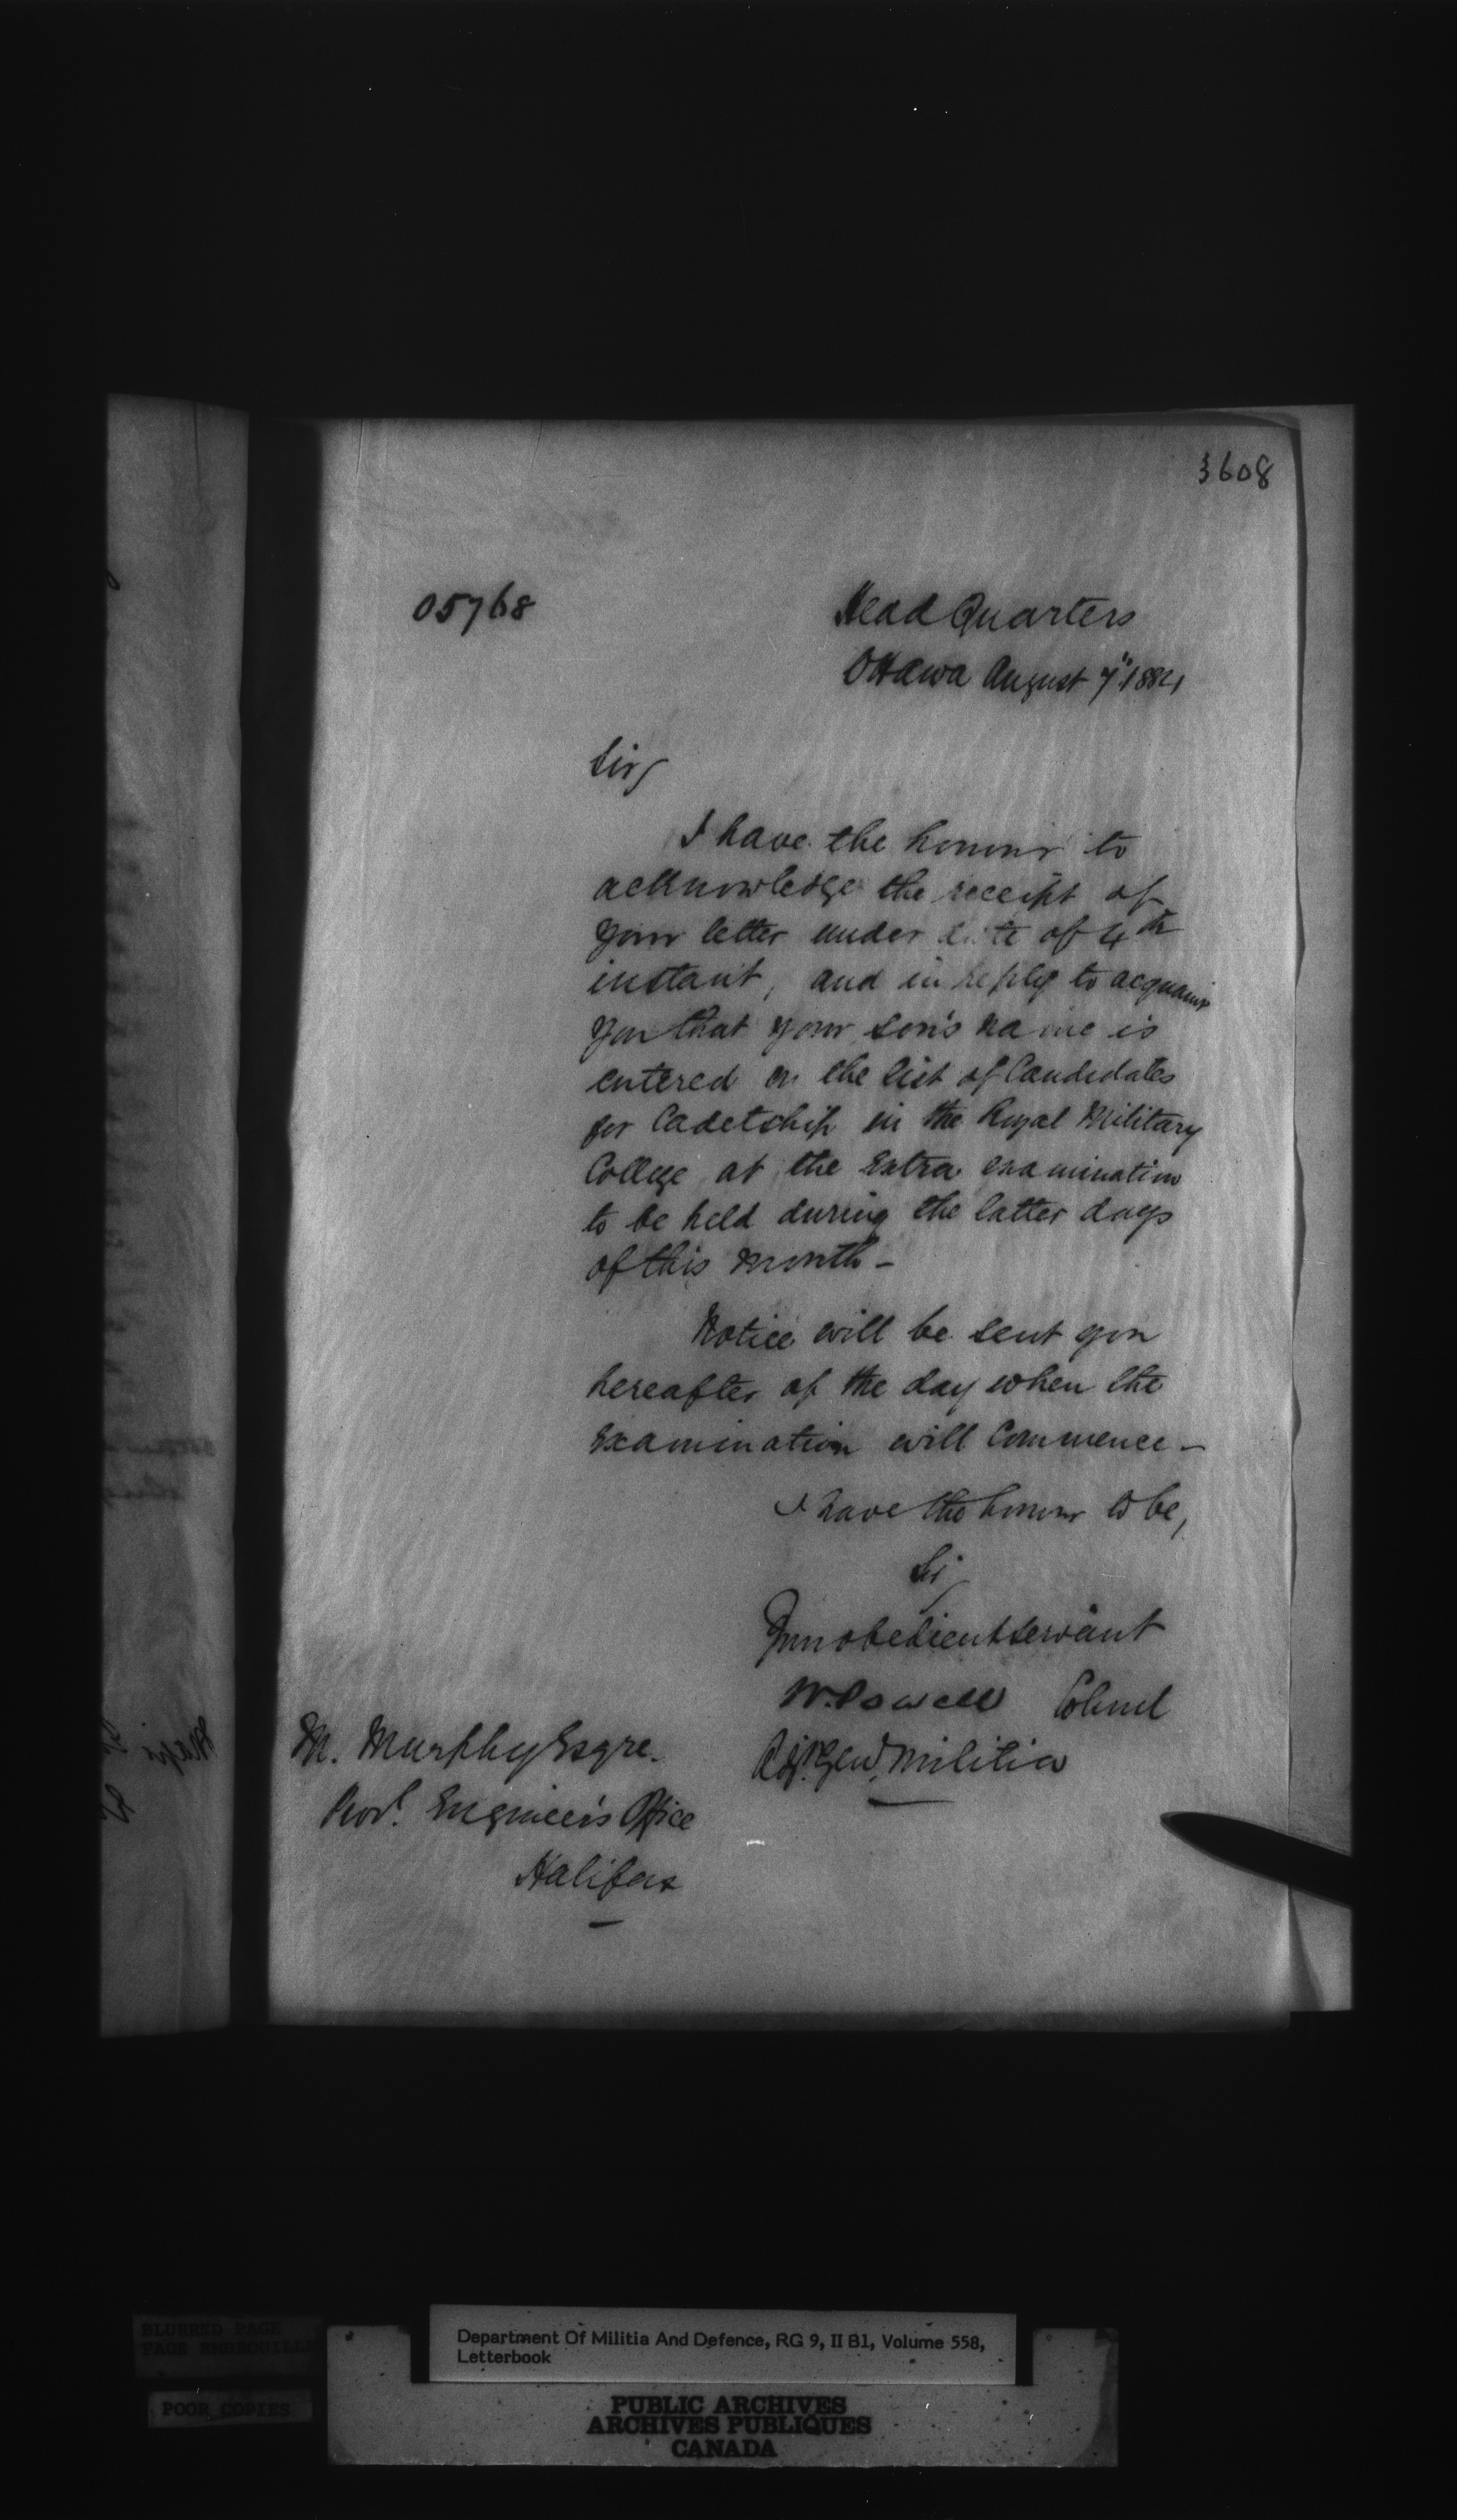 3608
05768
Head Quarters
Ottawa August 7" 1884
Sir,
I have the honour to
acknowledge the receipt of
your letter under date of 4th
instant, and in reply to acquaint
you that your son's name is
entered on the list of Candidates
for Cadetship in the Royal Military
College at the Extra examination
to be held during the latter days
of this month -
Notice will be sent you
hereafter of the day when the
Examination will Commence -
I have the honour to be,
Sir
Your obedient servant
W. Powell Colonel
Adjt. Genl. Militia
M. Murphy Esqre.
Provl. Engineer's Office
Halifax
BLURRED PAGE
PAGE EMBROUILL
POOR COPIES
Department Of Militia And Defence, RG 9, II B1, Volume 558,
Letterbook
PUBLIC ARCHIVES
ARCHIVES PUBLIQUES
CANADA